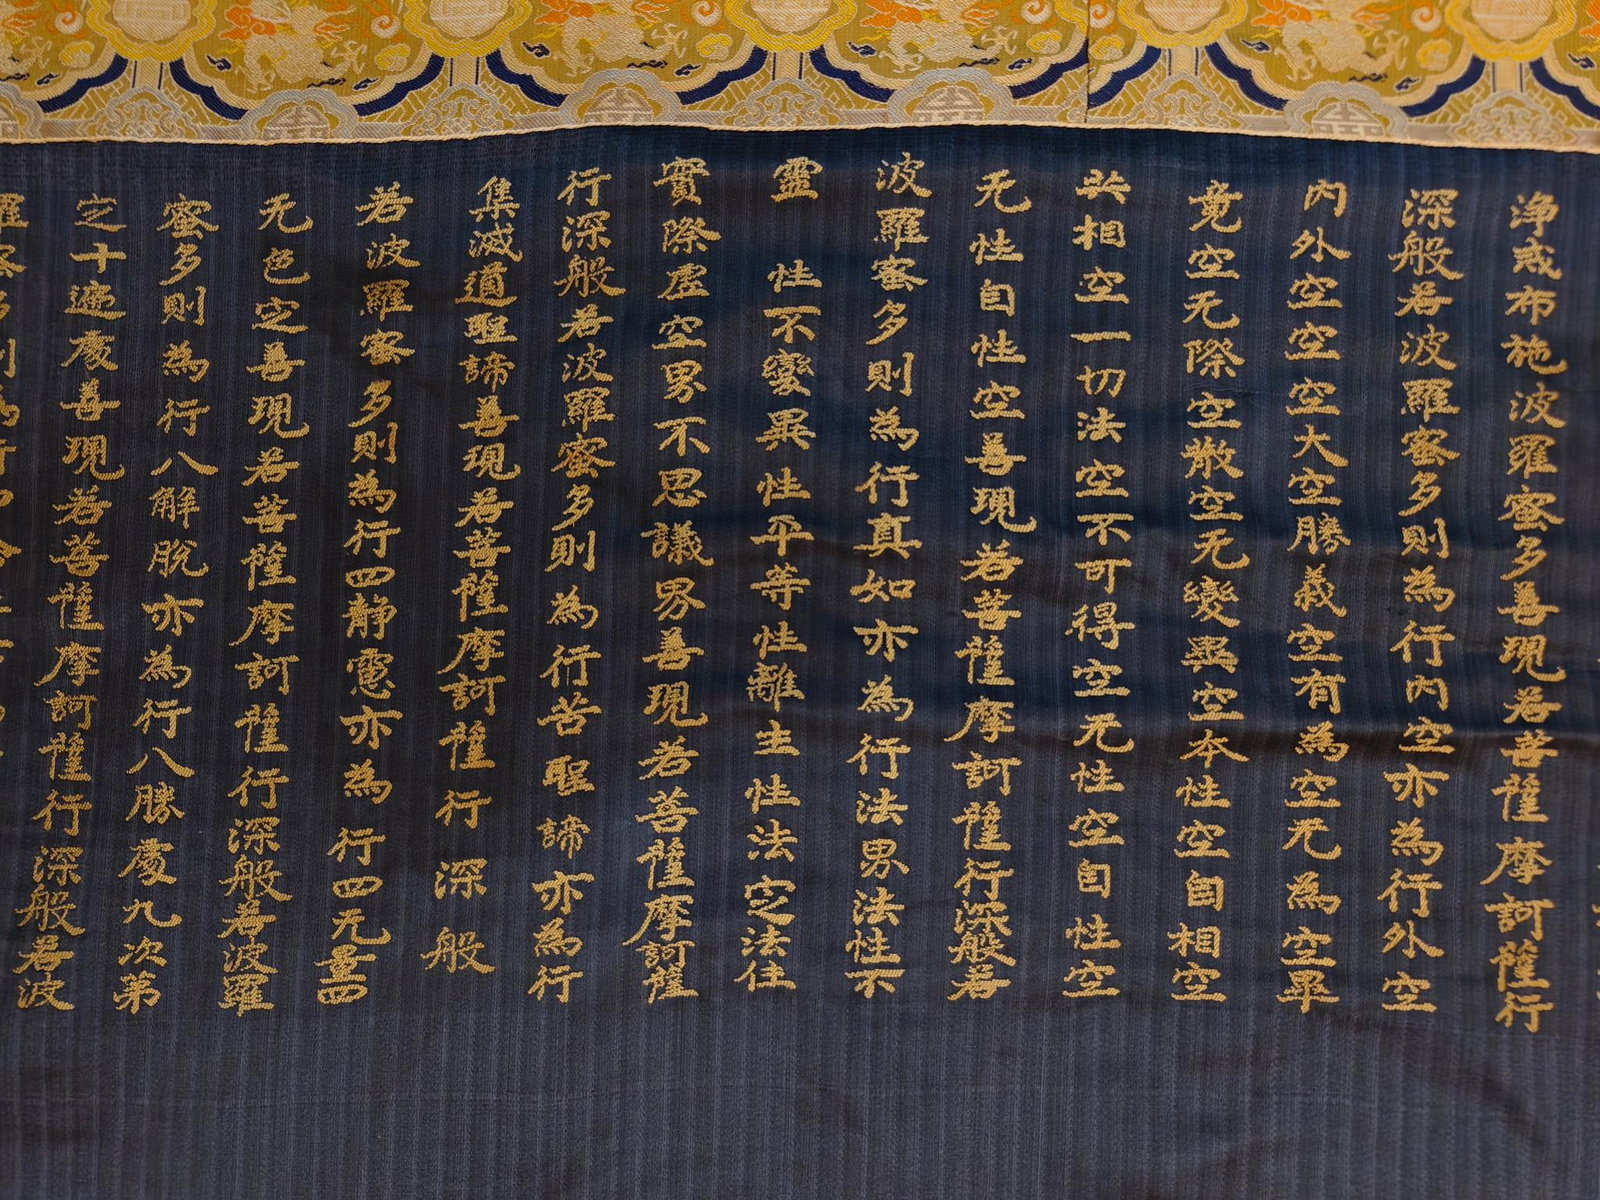 淨戒布施波羅蜜多善現若菩薩摩訶薩行
深般若波羅蜜多則為行內空亦為行外空
內外空空空大空勝義空有為空无為空畢
竟空无際空散空无變異空本性空自相空
共相空一切法空不可得空无性空自性空
无性自性空善現若菩薩摩訶薩行深般若
波羅蜜多則為行真如亦為行法界法性不
靈性不變異性平等性離生性法定法住
實際虛空界不思議界善現若菩薩摩訶薩
行深般若波羅蜜多則為行苦聖諦亦為行
集滅道聖諦善現若菩薩摩訶薩行深般
若波羅蜜多則為行四靜慮亦為行四无量四
无色定善現若菩薩摩訶薩行深般若波羅
蜜多則為行八解脫亦為行八勝處九次第
定十遍處善現若菩薩摩訶薩行深般若波